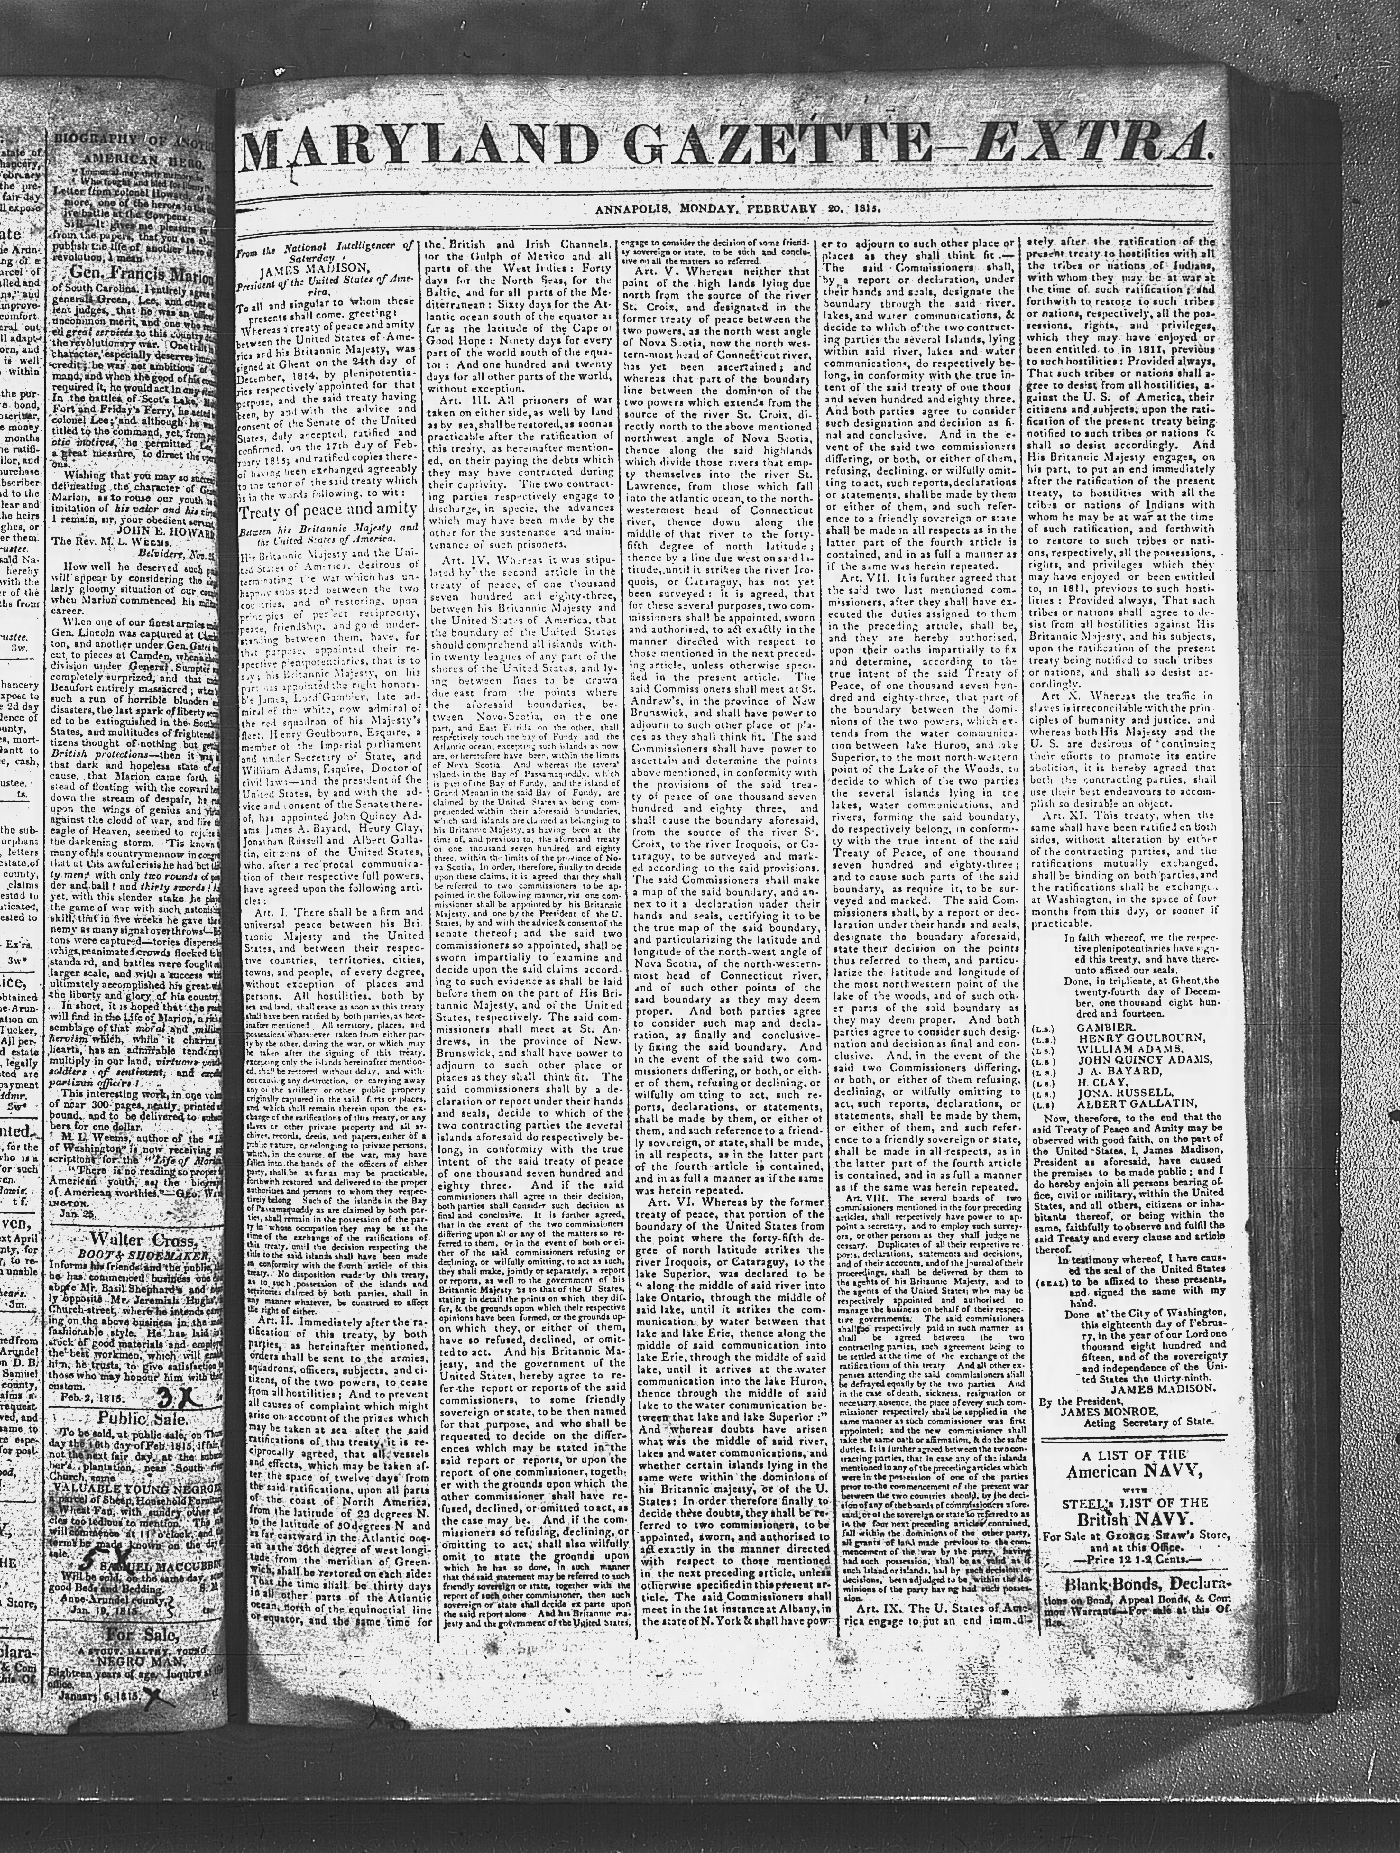 BIOGRAPHY OF ANOTHER
AMERICAN HERO.
Letter from colonel Howard,
more, one of the heroes
the battle at the Cowpens.
Sir—It gives me pleasure
from the papers, that you are
publish the life of another hero
revolution, I mean
Gen. Francis Marion
of South Carolina. I entirely agree
generals Green, Lee, and other
lent judges, that he was an officer
uncommon merit, and one who
ed great services to this country
the revolutionary war. One trait
character, especially deserves
credit; he was not ambitious of
mand, and when the good of his
required it, he would act in any
In the battles of Scot's Lake,
Fort and Friday's Ferry, he acted
colonel Lee; and although he
titled to the command, yet, from
otic motives, he permitted
a great measure, to direct the
ons.
Wishing that you may so succeed
delineating the character of
Marion, as to rouse our youth
imitation of his valor and his
I remain, sir, your obedient servant
JOHN E. HOWARD
The Rev. M. L. WEEMS.
Belvidere, Nov.
How well he deserved such
will appear by considering the
larly gloomy situation of our
when Marion commenced his
career.
When one of our finest armies
Gen. Lincoln was captured at
ton, and another under Gen. Gates
cut to pieces at Camden, when
division under General Sumpter
completely surprized, and that
Beaufort entirely massacred; when
such a run of horrible blunders
disasters, the last spark of liberty
ed to be extinguished in the South
States, and multitudes of frightened
tizens thought of nothing but
British protections—then it was
that dark and hopeless state of
cause, that Marion came forth
stead of floating with the coward
down the stream of despair, he
upon the wings of genius and
against the cloud of war, and like
eagle of Heaven, seemed to rejoice
the darkening storm. 'Tis known
many of his countrymen now in
that at this awful crisis he had but
ty men! with only two rounds of
der and ball! and thirty swords!
yet, with this slender stake he
the game of war with such
skill, that in five weeks he gave
nemy as many signal overthrows!—
tons were captured—tories dispersed
whigs, reanimated crowds flocked
standard, and battles were fought
larger scale, and with a success
ultimately accomplished his great
the liberty and glory of his country
In short, it is hoped that the
will find in the Life of Marion, a
semblage of that moral and military
heroism which, while it charms
hearts, has an admirable tendency
multiply in our land, virtuous
soldiers of sentiment, and
partizan officers!
This interesting work, in one vol
of near 300 pages, neatly printed
bound, and to be delivered to
bers for one dollar.
M. L. Weems, author of the
of Washington is now receiving
scriptions for the "Life of Marion
"There is no reading so proper
American youth, as the biography
of American worthies."—GEO. WASH
INGTON.
Jan. 26.
Walter Cross,
BOOT & SHOEMAKER,
Informs his friends and the public,
he has commenced business one
above Mr. Basil Shephard's and
ly opposite Mr. Jeremiah Hughes'
Church-street, where he intends
ing on the above business in the
fashionable style. He has laid in
stock of good materials and
the best workmen, which will
him, he trusts, to give satisfaction
those who may honour him with
custom.
Feb. 2, 1815. 3X
Public Sale.
To be sold, at public sale, on
day the 16th day of Feb. 1815, if fair,
not the next fair day, at the
ber's plantation, near South
Church, some
VALUABLE YOUNG NEGROES
a parcel of Sheep, Household Furniture
a Wheat Fan, with sundry other
cles too tedious to mention. The
will commence at 11 o'clock, and
terms be made known on the day
sale.
SAMUEL MACCUBBIN
Will be sold, on the same day, some
good Beds and Bedding.
Anne-Arundel county,
Jan. 19, 1815.
For Sale,
A STOUT, HALTHY, YOUNG
NEGRO MAN,
Eighteen years of age. Inquire at
office.
January 6, 1815. X
MARYLAND GAZETTE—EXTRA.
ANNAPOLIS, MONDAY, FEBRUARY 20, 1815.
From the National Intelligencer of
Saturday.
JAMES MADISON,
President of the United States of Ame-
rica.
To all and singular to whom these
presents shall come, greeting:
Whereas a treaty of peace and amity
between the United States of Ame-
rica and his Britannic Majesty, was
signed at Ghent on the 24th day of
December, 1814, by plenipotentia-
ries respectively appointed for that
purpose, and the said treaty having
been, by and with the advice and
consent of the Senate of the United
States, duly accepted, ratified and
confirmed, on the 17th day of Feb-
ruary 1815; and ratified copies there-
of having been exchanged agreeably
to the tenor of the said treaty which
is in the words following, to wit:
Treaty of peace and amity
Between his Britannic Majesty and
the United States of America.
His Britannic Majesty and the Uni-
ted States of America, desirous of
terminating the war which has un-
happily subsisted between the two
countries, and of restoring, upon
principles of perfect reciprocity,
peace, friendship, and good under-
standing between them, have, for
that purpose, appointed their re-
spective plenipotentiaries, that is to
say; his Britannic Majesty, on his
part has appointed the right honora-
ble James, Lord Gambier, late ad-
miral of the white, now admiral of
the red squadron of his Majesty's
fleet, Henry Goulbourn, Esquire, a
member of the Imperial parliament
and under Secretary of State, and
William Adams, Esquire, Doctor of
civil laws—and the president of the
United States, by and with the ad-
vice and consent of the Senate there-
of, has appointed John Quincy Ad-
ams James A. Bayard, Henry Clay,
Jonathan Russell and Albert Galla-
tin, citizens of the United States,
who, after a reciprocal communica-
tion of their respective full powers,
have agreed upon the following arti-
cles:
Art. I. There shall be a firm and
universal peace between his Bri-
tannic Majesty and the United
States, and between their respec-
tive countries, territories, cities,
towns, and people, of every degree,
without exception of places and
persons. All hostilities, both by
sea and land, shall cease as soon as this treaty
shall have been ratified by both parties, as here-
inafter mentioned. All territory, places, and
possessions whatsoever, taken from either par-
ty by the other, during the war, or which may
be taken after the signing of this treaty,
excepting only the islands hereinafter mention-
ed, shall be restored without delay, and with-
out causing any destruction, or carrying away
any of the artillery or other public property
originally captured in the said forts or places,
and which shall remain therein upon the ex-
change of the ratifications of this treaty, or any
slaves or other private property and all ar-
chives, records, deeds, and papers, either of a
public nature, or belonging to private persons,
which, in the course of the war, may have
fallen into the hands of the officers of either
party, shall be as far as may be practicable,
forthwith restored and delivered to the proper
authorities and persons to whom they respec-
tively belong. Such of the islands in the Bay
of Passamaquaddy as are claimed by both par-
ties, shall remain in the possession of the par-
ty in whose occupation they may be at the
time of the exchange of the ratifications of
this treaty, until the decision respecting the
title to the said islands shall have been made
in conformity with the fourth article of this
treaty. No disposition made by this treaty,
as to such possession of the islands and
territories claimed by both parties, shall in
any manner whatever, be construed to affect
the right of either.
Art. II. Immediately after the ra-
tification of this treaty, by both
parties, as hereinafter mentioned,
orders shall be sent to the armies,
squadrons, officers, subjects, and ci-
tizens, of the two powers, to cease
from all hostilities; And to prevent
all causes of complaint which might
arise on account of the prizes which
may be taken at sea after the said
ratifications of this treaty, it is re-
ciprocally agreed, that all vessels
and effects, which may be taken af-
ter the space of twelve days from
the said ratifications, upon all parts
of the coast of North America,
from the latitude of 23 degrees N.
to the latitude of 50 degrees N and
as far eastward in the Atlantic oce-
an as the 36th degree of west longi-
tude from the meridian of Green-
wich, shall be restored on each side:
That the time shall be thirty days
in all other parts of the Atlantic
ocean, north of the equinoctial line
or equator, and the same time for
the British and Irish Channels,
for the Gulph of Mexico and all
parts of the West Indies: Forty
days for the North Seas, for the
Baltic, and for all parts of the Me-
diterranean: Sixty days for the At-
lantic ocean south of the equator as
far as the latitude of the Cape of
Good Hope: Ninety days for every
part of the world south of the equa-
tor: And one hundred and twenty
days for all other parts of the world,
without exception.
Art. III. All prisoners of war
taken on either side, as well by land
as by sea, shall be restored, as soon as
practicable after the ratification of
this treaty, as hereinafter mention-
ed, on their paying the debts which
they may have contracted during
their captivity. The two contract-
ing parties respectively engage to
discharge, in specie, the advances
which may have been made by the
other for the sustenance and main-
tenance of such prisoners.
Art. IV. Whereas it was stipu-
lated by the second article in the
treaty of peace, of one thousand
seven hundred and eighty-three,
between his Britannic Majesty and
the United States of America, that
the boundary of the United States
should comprehend all islands with-
in twenty leagues of any part of the
shores of the United States, and ly-
ing between lines to be drawn
due east from the points where
the aforesaid boundaries, be-
tween Nova-Scotia, on the one
part, and East Florida on the other, shall
respectively touch the bay of Fundy, and the
Atlantic ocean, excepting such islands as now
are, or heretofore have been, within the limits
of Nova Scotia. And whereas the several
islands in the Bay of Passamaquoddy, which
is part of the Bay of Fundy, and the island of
Grand Menan in the said Bay of Fundy, are
claimed by the United States as being com-
prehended within their aforesaid boundaries,
which said islands are claimed as belonging to
his Britannic Majesty, as having been at the
time of, and previous to, the aforesaid treaty
of one thousand seven hundred and eighty
three, within the limits of the province of No-
va Scotia. In order, therefore, finally to decide
upon these claims, it is agreed that they shall
be referred to two commissioners to be ap-
pointed in the following manner, viz one com-
missioner shall be appointed by his Britannic
Majesty, and one by the President of the U.
States, by and with the advice & consent of the
senate thereof; and the said two
commissioners so appointed, shall be
sworn impartially to examine and
decide upon the said claims accord-
ing to such evidence as shall be laid
before them on the part of His Bri-
tannic Majesty, and of the United
States, respectively. The said com-
missioners shall meet at St. An-
drews, in the province of New-
Brunswick, and shall have power to
adjourn to such other place or
places as they shall think fit. The
said commissioners shall by a de-
claration or report under their hands
and seals, decide to which of the
two contracting parties the several
islands aforesaid do respectively be-
long, in conformity with the true
intent of the said treaty of peace
of one thousand seven hundred and
eighty three. And if the said
commissioners shall agree in their decision,
both parties shall consider such decision as
final and conclusive. It is further agreed,
that in the event of the two commissioners
differing upon all or any of the matters so re-
ferred to them, or in the event of both or ei-
ther of the said commissioners refusing or
declining, or wilfully omitting, to act as such,
they shall make, jointly or separately, a report
or reports, as well to the government of his
Britannic Majesty as to that of the U States,
stating in detail the points on which they dif-
fer, & the grounds upon which their respective
opinions have been formed, or the grounds up-
on which they, or either of them,
have so refused, declined, or omit-
ted to act. And his Britannic Ma-
jesty, and the government of the
United States, hereby agree to re-
fer the report or reports of the said
commissioners, to some friendly
sovereign or state, to be then named
for that purpose, and who shall be
requested to decide on the differ-
ences which may be stated in the
said report or reports, or upon the
report of one commissioner, togeth-
er with the grounds upon which the
other commissioner shall have re-
fused, declined, or omitted to act, as
the case may be. And if the com-
missioners so refusing, declining, or
omitting to act, shall also wilfully
omit to state the grounds upon
which he has so done, in such manner
that the said statement may be referred to such
friendly sovereign or state, together with the
report of such other commissioner, then such
sovereign or state shall decide ex parte upon
the said report alone. And his Britannic ma-
jesty and the government of the United States,
engage to consider the decision of some friend-
ly sovereign or state, to be such and conclu-
sive on all the matters so referred.
Art. V. Whereas neither that
point of the high lands lying due
north from the source of the river
St. Croix, and designated in the
former treaty of peace between the
two powers, as the north west angle
of Nova Scotia, now the north wes-
tern-most head of Connecticut river,
has yet been ascertained; and
whereas that part of the boundary
line between the dominion of the
two powers which extends from the
source of the river St. Croix, di-
rectly north to the above mentioned
northwest angle of Nova Scotia,
thence along the said highlands
which divide those rivers that emp-
ty themselves into the river St.
Lawrence, from those which fall
into the atlantic ocean, to the north-
westermost head of Connecticut
river, thence down along the
middle of that river to the forty-
fifth degree of north latitude;
thence by a line due west on said la-
titude, until it strikes the river Iro-
quois, or Cataraguy, has not yet
been surveyed: it is agreed, that
for these several purposes, two com-
missioners shall be appointed, sworn
and authorised, to act exactly in the
manner directed with respect to
those mentioned in the next preced-
ing article, unless otherwise speci-
fied in the present article. The
said Commissioners shall meet at St.
Andrew's, in the province of New
Brunswick, and shall have power to
adjourn to such other place or pla-
ces as they shall think fit. The said
Commissioners shall have power to
ascertain and determine the points
above mentioned, in conformity with
the provisions of the said trea-
ty of peace of one thousand seven
hundred and eighty three, and
shall cause the boundary aforesaid,
from the source of the river St.
Croix, to the river Iroquois, or Ca-
taraguy, to be surveyed and mark-
ed according to the said provisions.
The said Commissioners shall make
a map of the said boundary, and an-
nex to it a declaration under their
hands and seals, certifying it to be
the true map of the said boundary,
and particularizing the latitude and
longitude of the north-west angle of
Nova Scotia, of the north-western-
most head of Connecticut river,
and of such other points of the
said boundary as they may deem
proper. And both parties agree
to consider such map and decla-
ration, as finally and conclusive-
ly fixing the said boundary. And
in the event of the said two com-
missioners differing, or both, or eith-
er of them refusing or declining, or
wilfully omitting to act, such re-
ports, declarations, or statements,
shall be made by them, or either of
them, and such reference to a friend-
ly sovereign, or state, shall be made,
in all respects, as in the latter part
of the fourth article is contained,
and in as full a manner as if the same
was herein repeated.
Art. VI. Whereas by the former
treaty of peace, that portion of the
boundary of the United States from
the point where the forty-fifth de-
gree of north latitude strikes the
river Iroquois, or Cataraguy, to the
lake Superior, was declared to be
"along the middle of said river into
lake Ontario, through the middle of
said lake, until it strikes the com-
munication by water between that
lake and lake Erie, thence along the
middle of said communication into
lake Erie, through the middle of said
lake, until it arrives at the water
communication into the lake Huron,
thence through the middle of said
lake to the water communication be-
tween that lake and lake Superior:"
And whereas doubts have arisen
what was the middle of said river,
lakes and water communications, and
whether certain islands lying in the
same were within the dominions of
his Britannic majesty, or of the U.
States: In order therefore finally to
decide these doubts, they shall be re-
ferred to two commissioners, to be
appointed, sworn, and authorised to
act exactly in the manner directed
with respect to those mentioned
in the next preceding article, unless
otherwise specified in this present ar-
ticle. The said Commissioners shall
meet in the 1st instance at Albany, in
the state of N. York & shall have pow-
er to adjourn to such other place or
places as they shall think fit.—
The said Commissioners shall,
by a report or declaration, under
their hands and seals, designate the
boundary through the said river,
lakes, and water communications, &
decide to which of the two contract-
ing parties the several Islands, lying
within said river, lakes and water
communications, do respectively be-
long, in conformity with the true in-
tent of the said treaty of one thous
and seven hundred and eighty three.
And both parties agree to consider
such designation and decision as fi-
nal and conclusive. And in the e-
vent of the said two commissioners
differing, or both, or either of them,
refusing, declining, or wilfully omit-
ting to act, such reports, declarations
or statements, shall be made by them
or either of them, and such refer-
ence to a friendly sovereign or state
shall be made in all respects as in the
latter part of the fourth article is
contained, and in as full a manner as
if the same was herein repeated.
Art. VII. It is further agreed that
the said two last mentioned com-
missioners, after they shall have ex-
ecuted the duties assigned to them
in the preceding article, shall be,
and they are hereby authorised,
upon their oaths impartially to fix
and determine, according to the
true intent of the said Treaty of
Peace, of one thousand seven hun-
dred and eighty-three, that part of
the boundary between the domi-
nions of the two powers, which ex-
tends from the water communica-
tion between lake Huron, and lake
Superior, to the most north-western
point of the Lake of the Woods, to
decide to which of the two parties
the several islands lying in the
lakes, water communications, and
rivers, forming the said boundary,
do respectively belong, in conformi-
ty with the true intent of the said
Treaty of Peace, of one thousand
seven hundred and eighty-three;
and to cause such parts of the said
boundary, as require it, to be sur-
veyed and marked. The said Com-
missioners shall, by a report or dec-
laration under their hands and seals,
designate the boundary aforesaid,
state their decision on the points
thus referred to them, and particu-
larize the latitude and longitude of
the most northwestern point of the
lake of the woods, and of such oth-
er parts of the said boundary as
they may deem proper. And both
parties agree to consider such desig-
nation and decision as final and con-
clusive. And, in the event of the
said two Commissioners differing,
or both, or either of them refusing,
declining, or wilfully omitting to
act, such reports, declarations, or
statements, shall be made by them,
or either of them, and such refer-
ence to a friendly sovereign or state,
shall be made in all respects, as in
the latter part of the fourth article
is contained, and in as full a manner
as if the same was herein repeated.
Art. VIII. The several boards of two
commissioners mentioned in the four preceding
articles, shall respectively have power to ap-
point a secretary, and to employ such survey-
ors, or other persons as they shall judge ne
cessary. Duplicates of all their respective re
ports, declarations, statements and decisions,
and of their accounts, and of the journal of their
proceedings, shall be delivered by them to
the agents of his Britannic Majesty, and to
the agents of the United States; who may be
respectively appointed and authorised to
manage the business on behalf of their respec-
tive governments. The said commissioners
shall be respectively paid in such manner as
shall be agreed between the two
contracting parties, such agreement being to
be settled at the time of the exchange of the
ratifications of this treaty. And all other ex-
penses attending the said commissioners shall
be defrayed equally by the two parties. And
in the case of death, sickness, resignation or
necessary absence, the place of every such com-
missioner shall respectively be supplied in the
same manner as such commissioner was first
appointed; and the new commissioner shall
take the same oath or affirmation, & do the same
duties. It is further agreed between the two con-
tracting parties, that in case any of the islands
mentioned in any of the preceding articles which
were in the possession of one of the parties
prior to the commencement of the present war
between the two countries should, by the deci-
sion of any of the boards of commissioners afore-
said, or of the sovereign or state so referred to as
in the four next preceding articles contained,
fall within the dominions of the other party,
all grants of land made previous to the com-
mencement of the war by the party, having
had such possession, shall be as valid as if
such island or islands, had by such decision or
decisions, been adjudged to be within the do-
minions of the party having had such posses-
sion.
Art. IX. The U. States of Ame-
rica engage to put an end immedi-
ately after the ratification of the
present treaty to hostilities with all
the tribes or nations of Indians,
with whom they may be at war at
the time of such ratification; and
forthwith to restore to such tribes
or nations, respectively, all the pos-
sessions, rights, and privileges,
which they may have enjoyed or
been entitled to in 1811, previous
to such hostilities: Provided always,
That such tribes or nations shall a-
gree to desist from all hostilities, a-
gainst the U. S. of America, their
citizens and subjects, upon the rati-
fication of the present treaty being
notified to such tribes or nations &
shall so desist accordingly. And
His Britannic Majesty engages, on
his part, to put an end immediately
after the ratification of the present
treaty, to hostilities with all the
tribes or nations of Indians with
whom he may be at war at the time
of such ratification, and forthwith
to restore to such tribes or nati-
ons, respectively, all the possessions,
rights, and privileges which they
may have enjoyed or been entitled
to, in 1811, previous to such hosti-
lities: Provided always, That such
tribes or nations shall agree to de-
sist from all hostilities against His
Britannic Majesty, and his subjects,
upon the ratification of the present
treaty being notified to such tribes
or nations, and shall so desist ac-
cordingly.
Art X. Whereas the traffic in
slaves is irreconcilable with the prin-
ciples of humanity and justice, and
whereas both His Majesty and the
U. S. are desirous of continuing
their efforts to promote its entire
abolition, it is hereby agreed that
both the contracting parties, shall
use their best endeavours to accom-
plish so desirable an object.
Art. XI. This treaty, when the
same shall have been ratified on both
sides, without alteration by either
of the contracting parties, and the
ratifications mutually exchanged,
shall be binding on both parties, and
the ratifications shall be exchanged
at Washington, in the space of four
months from this day, or sooner if
practicable.
In faith whereof, we the respec-
tive plenipotentiaries have sign-
ed this treaty, and have there-
unto affixed our seals.
Done, in triplicate, at Ghent, the
twenty-fourth day of Decem-
ber, one thousand eight hun-
dred and fourteen.
(L.S.) GAMBIER.
(L.S.) HENRY GOULBOURN,
(L.S.) WILLIAM ADAMS,
(L.S.) JOHN QUINCY ADAMS,
(L.S.) J. A. BAYARD,
(L.S.) H. CLAY,
(L.S.) JONA. RUSSELL,
(L.S.) ALBERT GALLATIN,
Now, therefore, to the end that the
said Treaty of Peace and Amity may be
observed with good faith, on the part of
the United States, I, James Madison,
President as aforesaid, have caused
the premises to be made public; and I
do hereby enjoin all persons bearing of-
fice, civil or military, within the United
States, and all others, citizens or inha-
bitants thereof, or being within the
same, faithfully to observe and fulfil the
said Treaty and every clause and article
thereof.
In testimony whereof, I have caus-
ed the seal of the United States
(SEAL) to be affixed to these presents,
and signed the same with my
hand.
Done at the City of Washington,
this eighteenth day of Februa-
ry, in the year of our Lord one
thousand eight hundred and
fifteen, and of the sovereignty
and independence of the Uni-
ted States the thirty-ninth.
JAMES MADISON.
By the President,
JAMES MONROE,
Acting Secretary of State.
A LIST OF THE
American NAVY,
WITH
STEEL's LIST OF THE
British NAVY.
For Sale at GEORGE SHAW's Store,
and at this Office.
—Price 12 1-2 Cents.—
Blank Bonds, Declara-
tions on Bond, Appeal Bonds, & Com
mon Warrants—For sale at this Of-
fice.